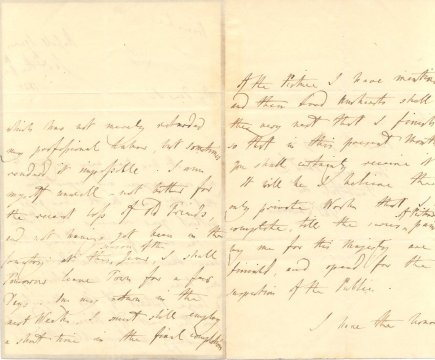 which has not merely retarded
my professional Labour but sometimes
rendered it impossible. I am
myself unwell - not better for
the recent loss of old Friends,
and not having yet been in the
country at this season of the year, I shall
tomorrow leave Town for a few
Days - on my return in the
next Week, I must still employ
a short time in the final completion
of the Picture I have mention
and then Lord shall
the very next that I finish
so that in this present Month
you shall certainly receive it
It will be I believe the
only private Work that I
complete, till the
by me for His Majesty are
finished, and opened for the
inspection of the Public.
I have the honor